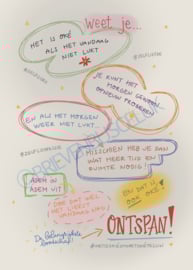 weet je...
HET IS OKÉ
ALS HET VANDAAG
NIET LUKT
JE KUNT HET
MORGEN GEWOON
OPNIEUW PROBEREN
EN ALS HET MORGEN
WEER NIET LUKT...
MISSCHIEN HEB JE DAN
WAT MEER TIJD EN
RUIMTE NODIG
ADEM IN
ADEM UIT
EN DAT IS
OOK OKÉ!
DOE DAT WEL
HET LIEFST
VANDAAG NOG!
De Belangrijkste
boodschap
ONTSPAN!